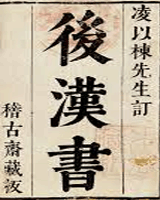 凌以棟先生訂
後漢書
稽古齋藏板